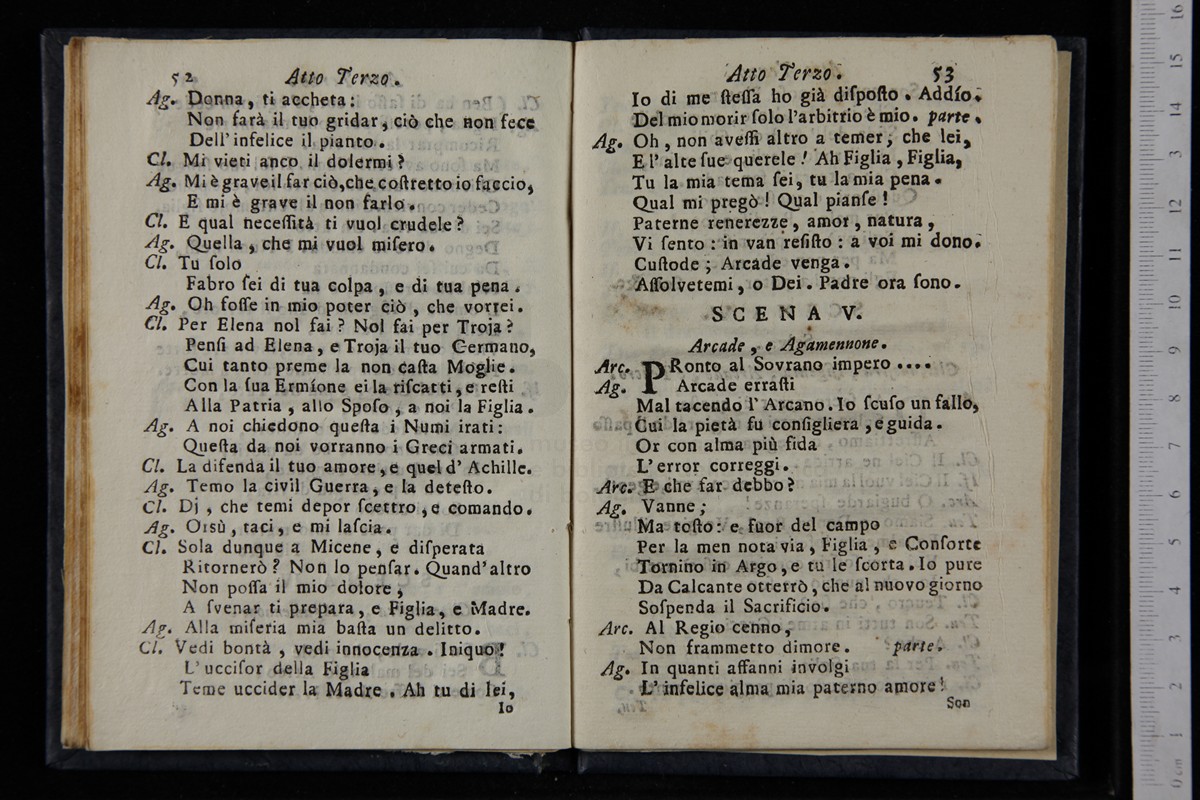 52 Atto Terzo.
Ag. Donna, ti accheta:
Non farà il tuo gridar, ciò che non fece
Dell' infelice il pianto.
Cl. Mi vieti anco il dolermi?
Ag. Mi è grave il far ciò, che coſtretto io faccio,
E mi è grave il non farlo.
Cl. E qual neceſſità ti vuol crudele?
Ag. Quella, che mi vuol miſero.
Cl. Tu ſolo
Fabro ſei di tua colpa, e di tua pena.
Ag. Oh foſſe in mio poter ciò, che vorrei.
Cl. Per Elena nol fai? Nol fai per Troja?
Penſi ad Elena, e Troja il tuo Germano,
Cui tanto preme la non caſta Moglie.
Con la ſua Ermíone ei la riſcatti, e reſti
Alla Patria, allo Spoſo, a noi la Figlia.
Ag. A noi chiedono queſta i Numi irati:
Queſta da noi vorranno i Greci armati.
Cl. La difenda il tuo amore, e quel d' Achille.
Ag. Temo la civil Guerra, e la deteſto.
Cl. Dj, che temi depor ſcettro, e comando.
Ag. Orsù, taci, e mi laſcia.
Cl. Sola dunque a Micene, e diſperata
Ritornerò? Non lo penſar. Quand' altro
Non poſſa il mio dolore,
A ſvenar ti prepara, e Figlia, e Madre.
Ag. Alla miſeria mia baſta un delitto.
Cl. Vedi bontà, vedi innocenza. Iniquo!
L' ucciſor della Figlia
Teme uccider la Madre. Ah tu di lei,
Io
Atto Terzo. 53
Io di me ſteſſa ho già diſpoſto. Addío.
Del mio morir ſolo l'arbitrio è mio. parte.
Ag. Oh, non aveſſi altro a temer, che lei,
E l' alte ſue querele! Ah Figlia, Figlia,
Tu la mia tema ſei, tu la mia pena.
Qual mi pregò! Qual pianſe!
Paterne renerezze, amor, natura,
Vi ſento: in van reſiſto: a voi mi dono.
Cuſtode; Arcade venga.
Aſſolvetemi, o Dei. Padre ora ſono.
SCENA V.
Arcade, e Agamennone.
Arc. PRonto al Sovrano impero ....
Ag. Arcade erraſti
Mal tacendo l' Arcano. Io ſcuſo un fallo,
Cui la pietà fu conſigliera, e guida.
Or con alma più fida
L' error correggi.
Arc. E che far debbo?
Ag. Vanne;
Ma toſto: e fuor del campo
Per la men nota via, Figlia, e Conſorte
Tornino in Argo, e tu le ſcorta. Io pure
Da Calcante otterrò, che al nuovo giorno
Soſpenda il Sacrificio.
Arc. Al Regio cenno,
Non frammetto dimore. parte.
Ag. In quanti affanni involgi
L' infelice alma mia paterno amore!
Son